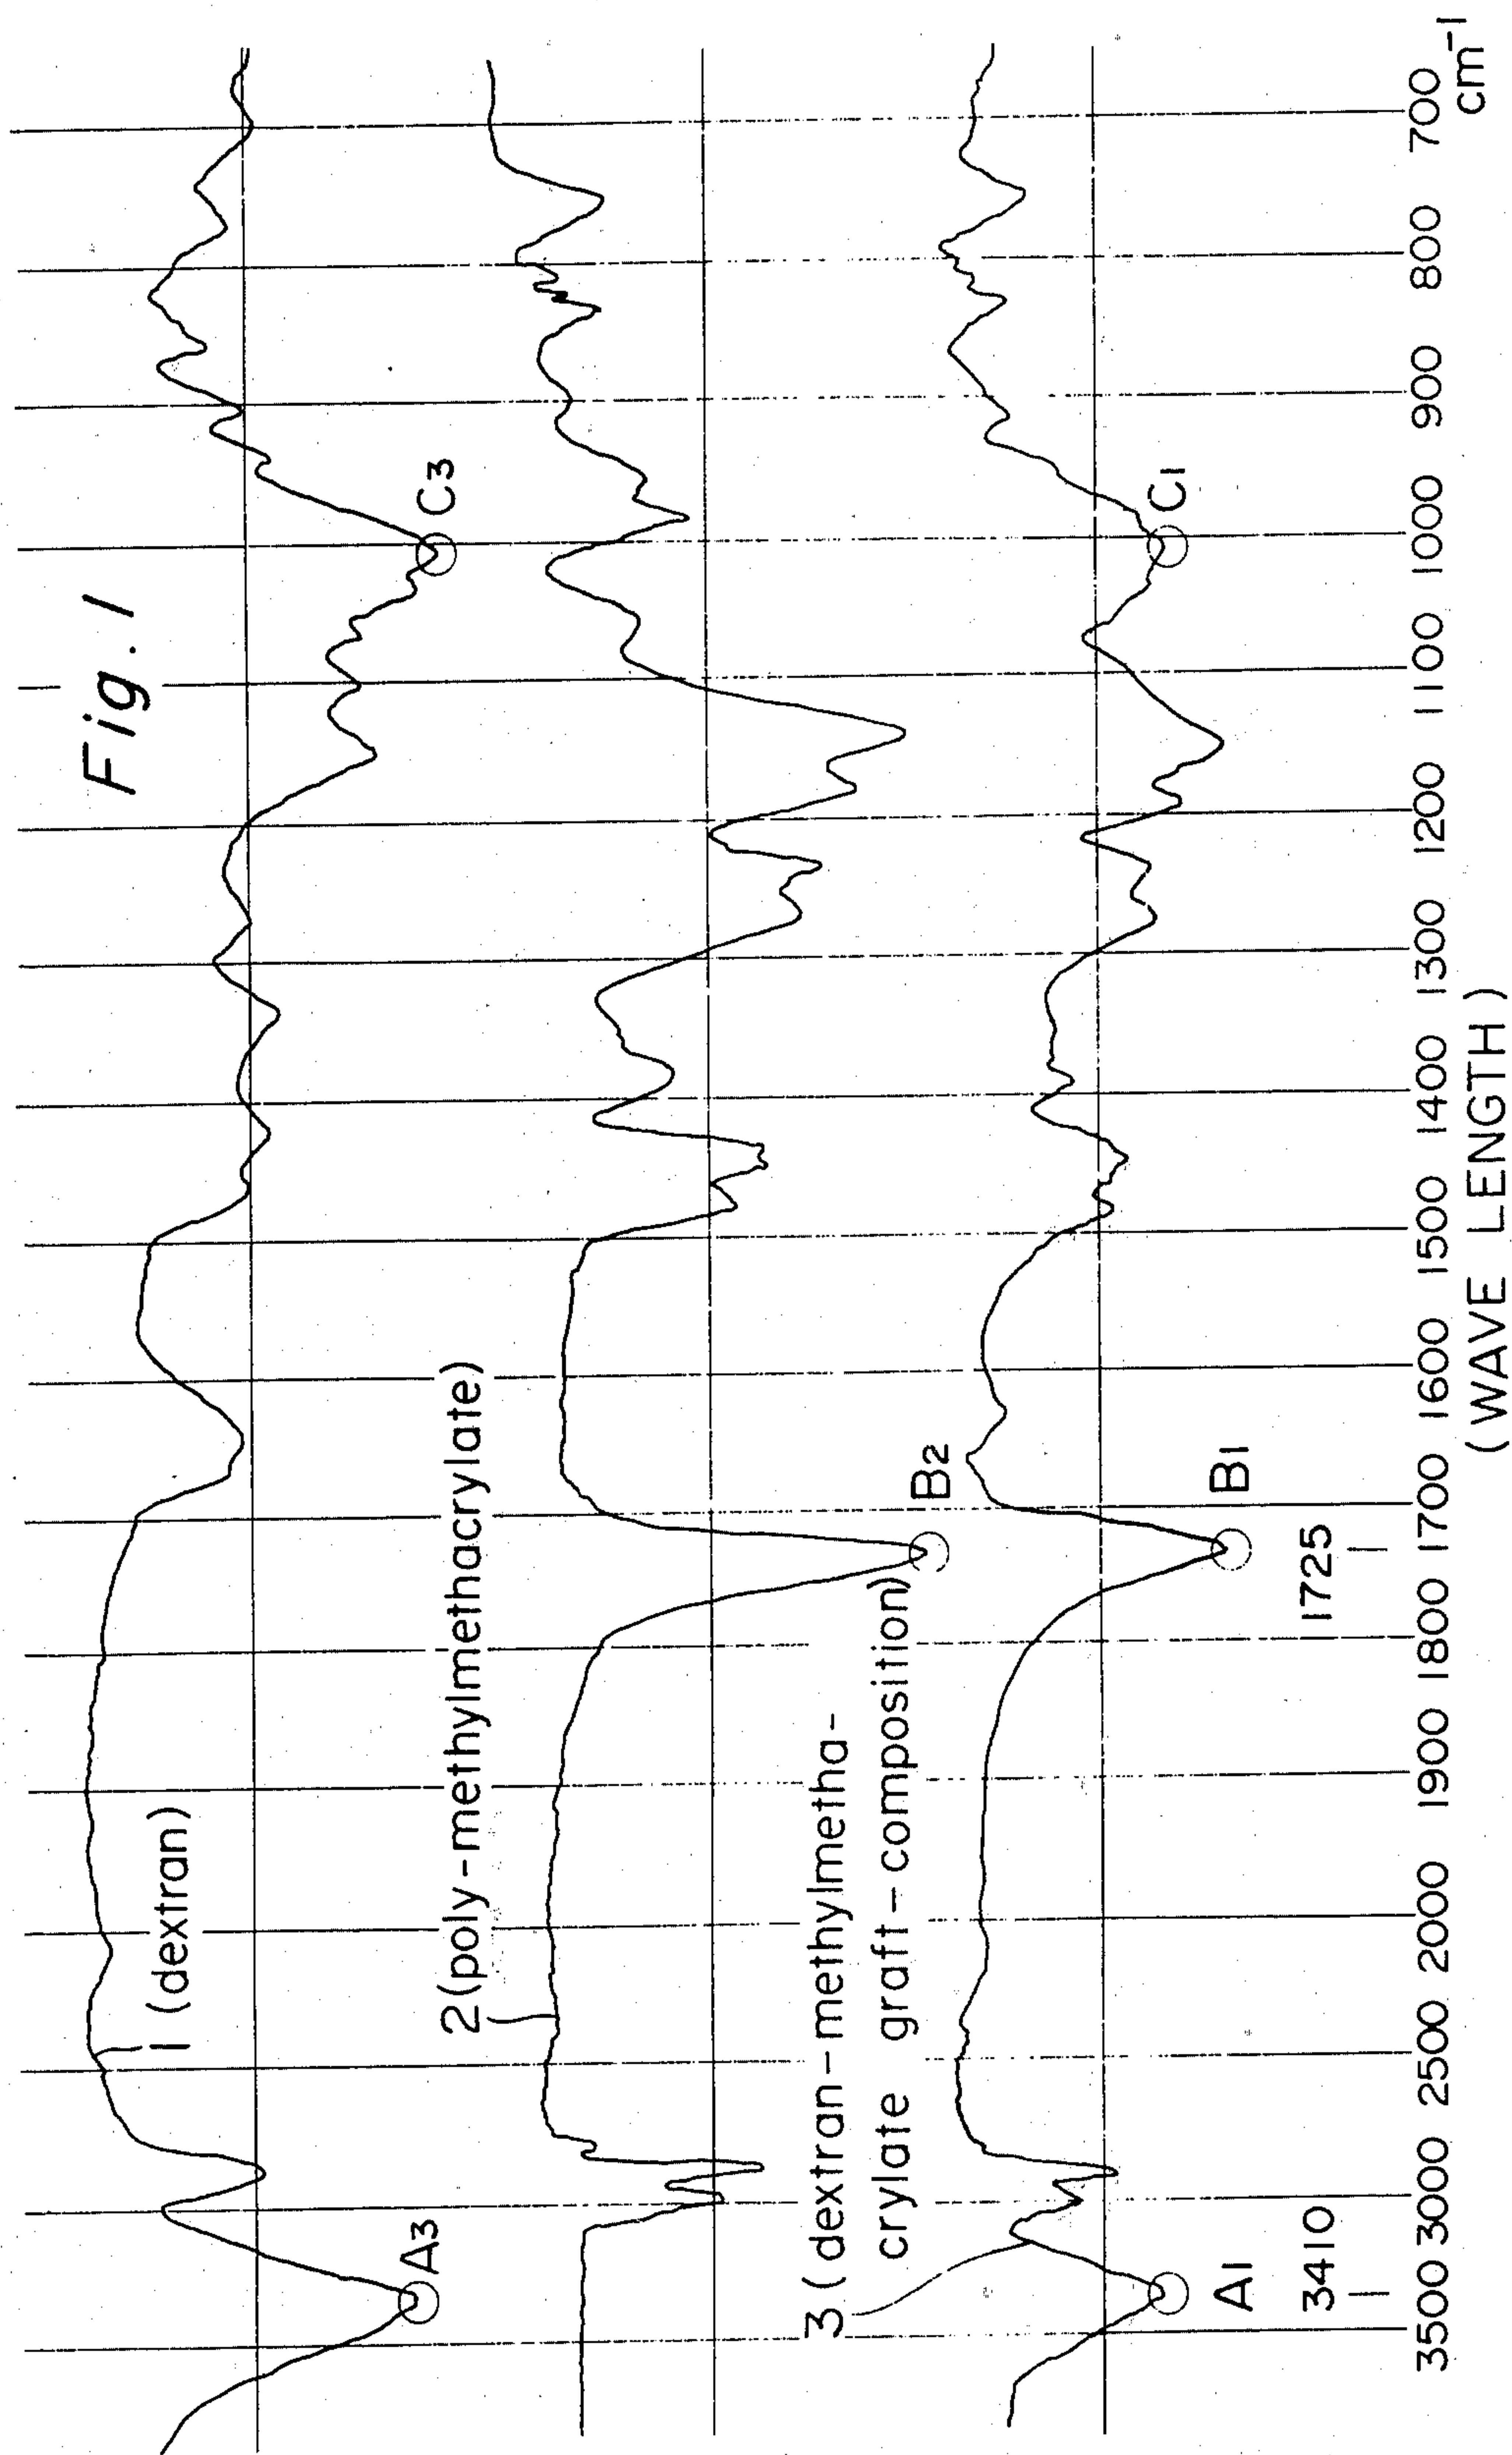 Fig. 1
1 (dextran)
A3
C3
2 (poly-methylmethacrylate)
B2
3 (dextran-methylmetha-
crylate graft-composition)
A1
B1
C1
3410
1725
3500 3000 2500 2000 1900 1800 1700 1600 1500 1400 1300 1200 1100 1000 900 800 700
cm-1
(WAVE LENGTH)